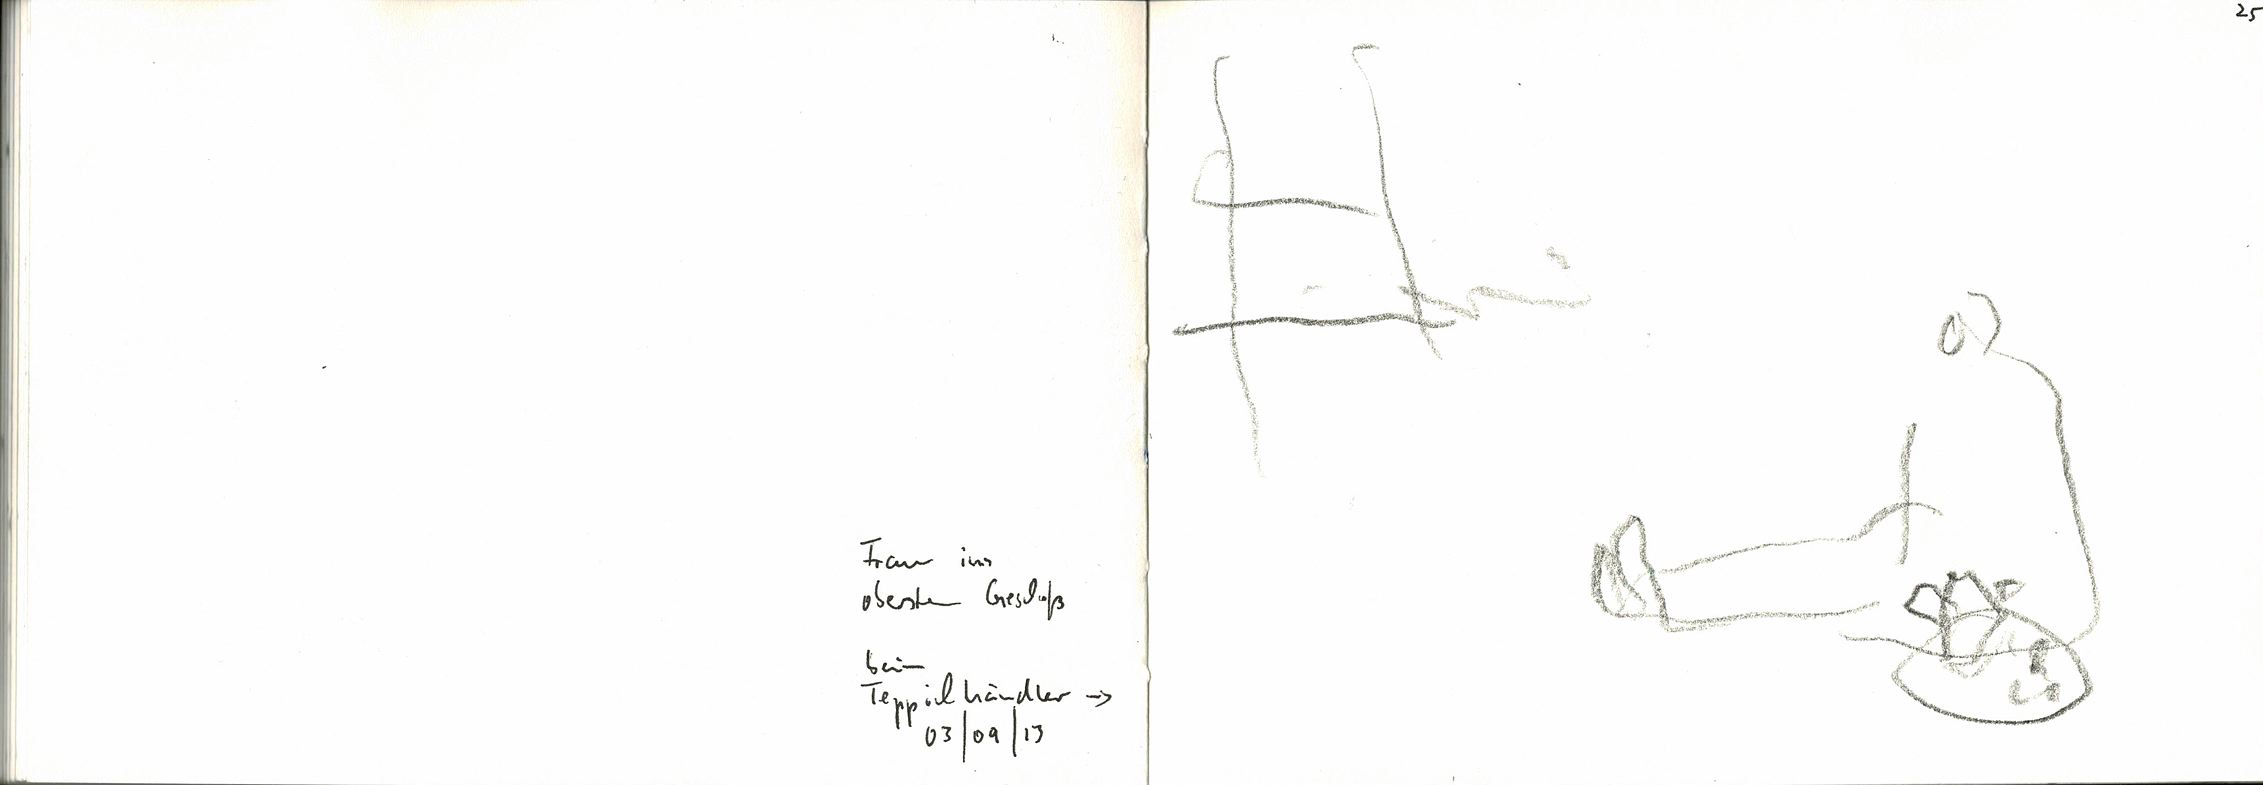 Frau im
obersten Geschoß
beim
Teppichhändler →
03/09/13
25